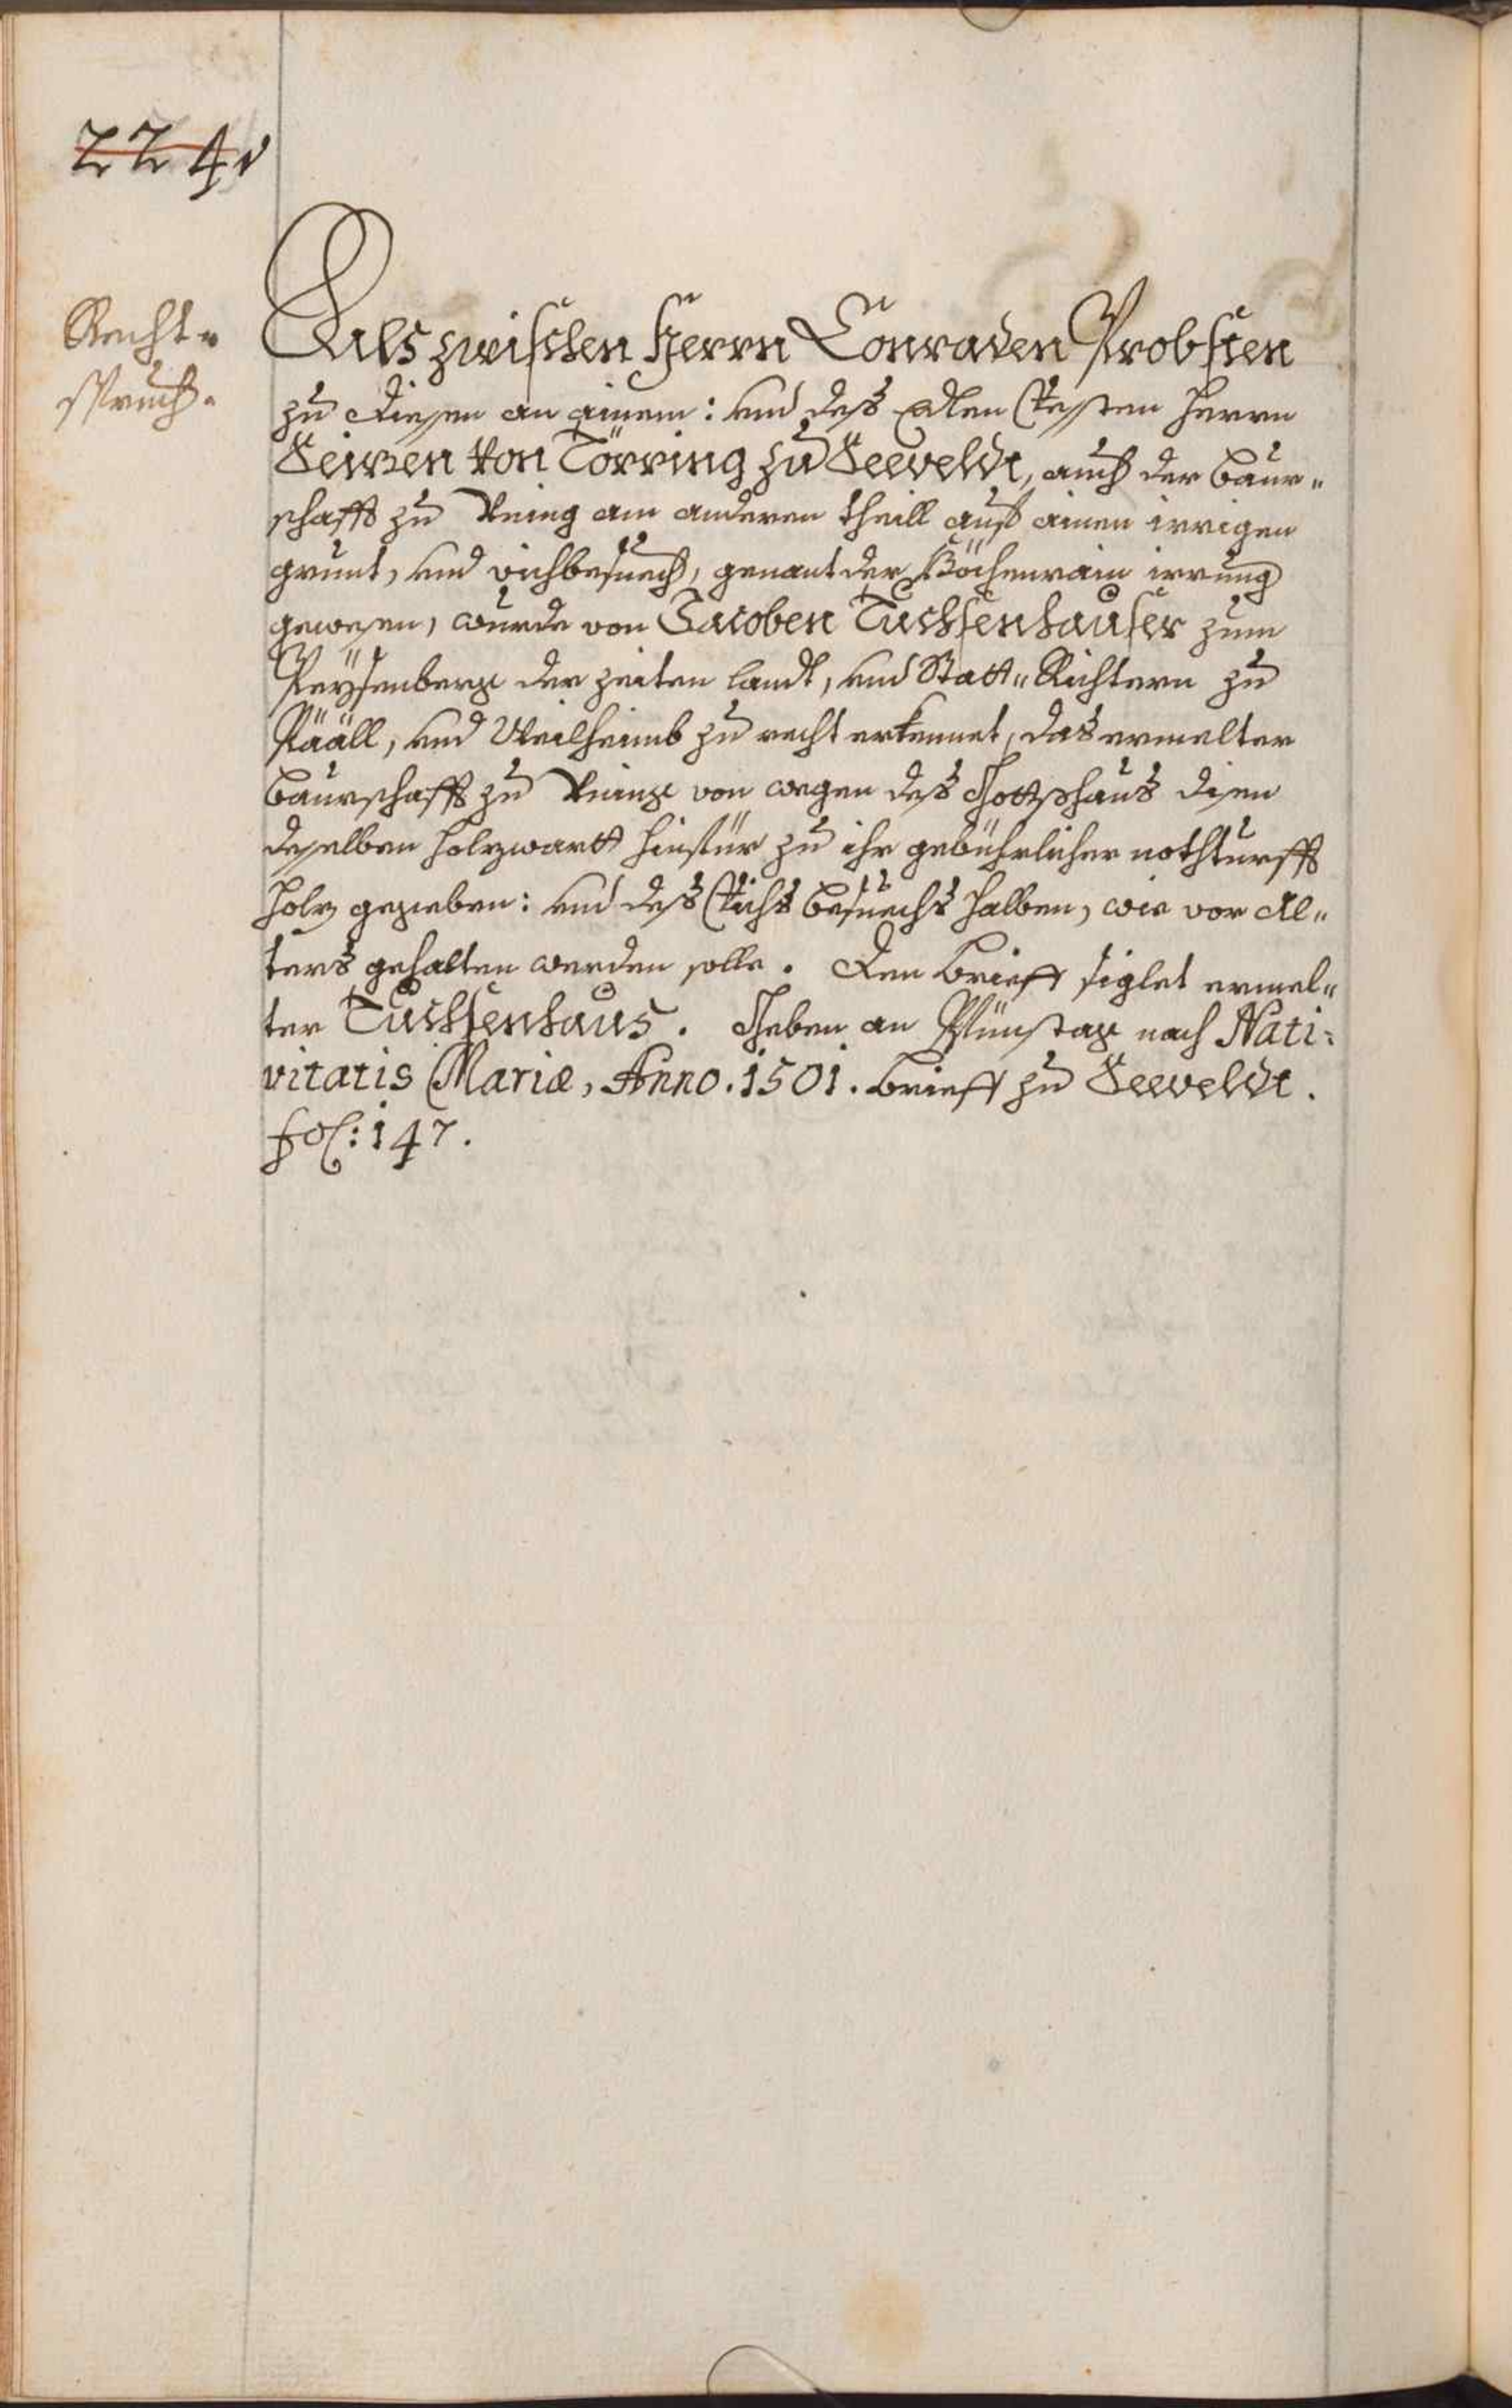 224v
Recht-
spruch.
Als zwischen Herrn Conraden Probsten
zu Diesen an ainem: und des Edlen Vesten Herrn
Seizen von Törring zu Seeveldt, auch der Baur-
schafft zu auch am anderen theill auß ainen irrigen
grunt, und vichbesuech, genant der Köchenrain irrung
gewesen, wurde von Jacoben Tuchsenhauser zum
Peyssenberg der zeiten landt, und Statt-Richtern zu
Pääll, und Weilheimb zu recht erkennet, das ermelter
Baurschafft zu von wegen des Gottshaus Disen
desselben holzwartt hinfür zu ihr gebührlicher notthurfft
holz gezieben: und des Vichs besuechs halben, wie vor Al-
ters gehalten werden solle. Den brieff siglet ermel-
ter Tuchsenhaus. Geben an Pfinstag nach Nati-
vitatis Mariæ, Anno. 1501. brieff zu Seeveldt.
fol: 147.